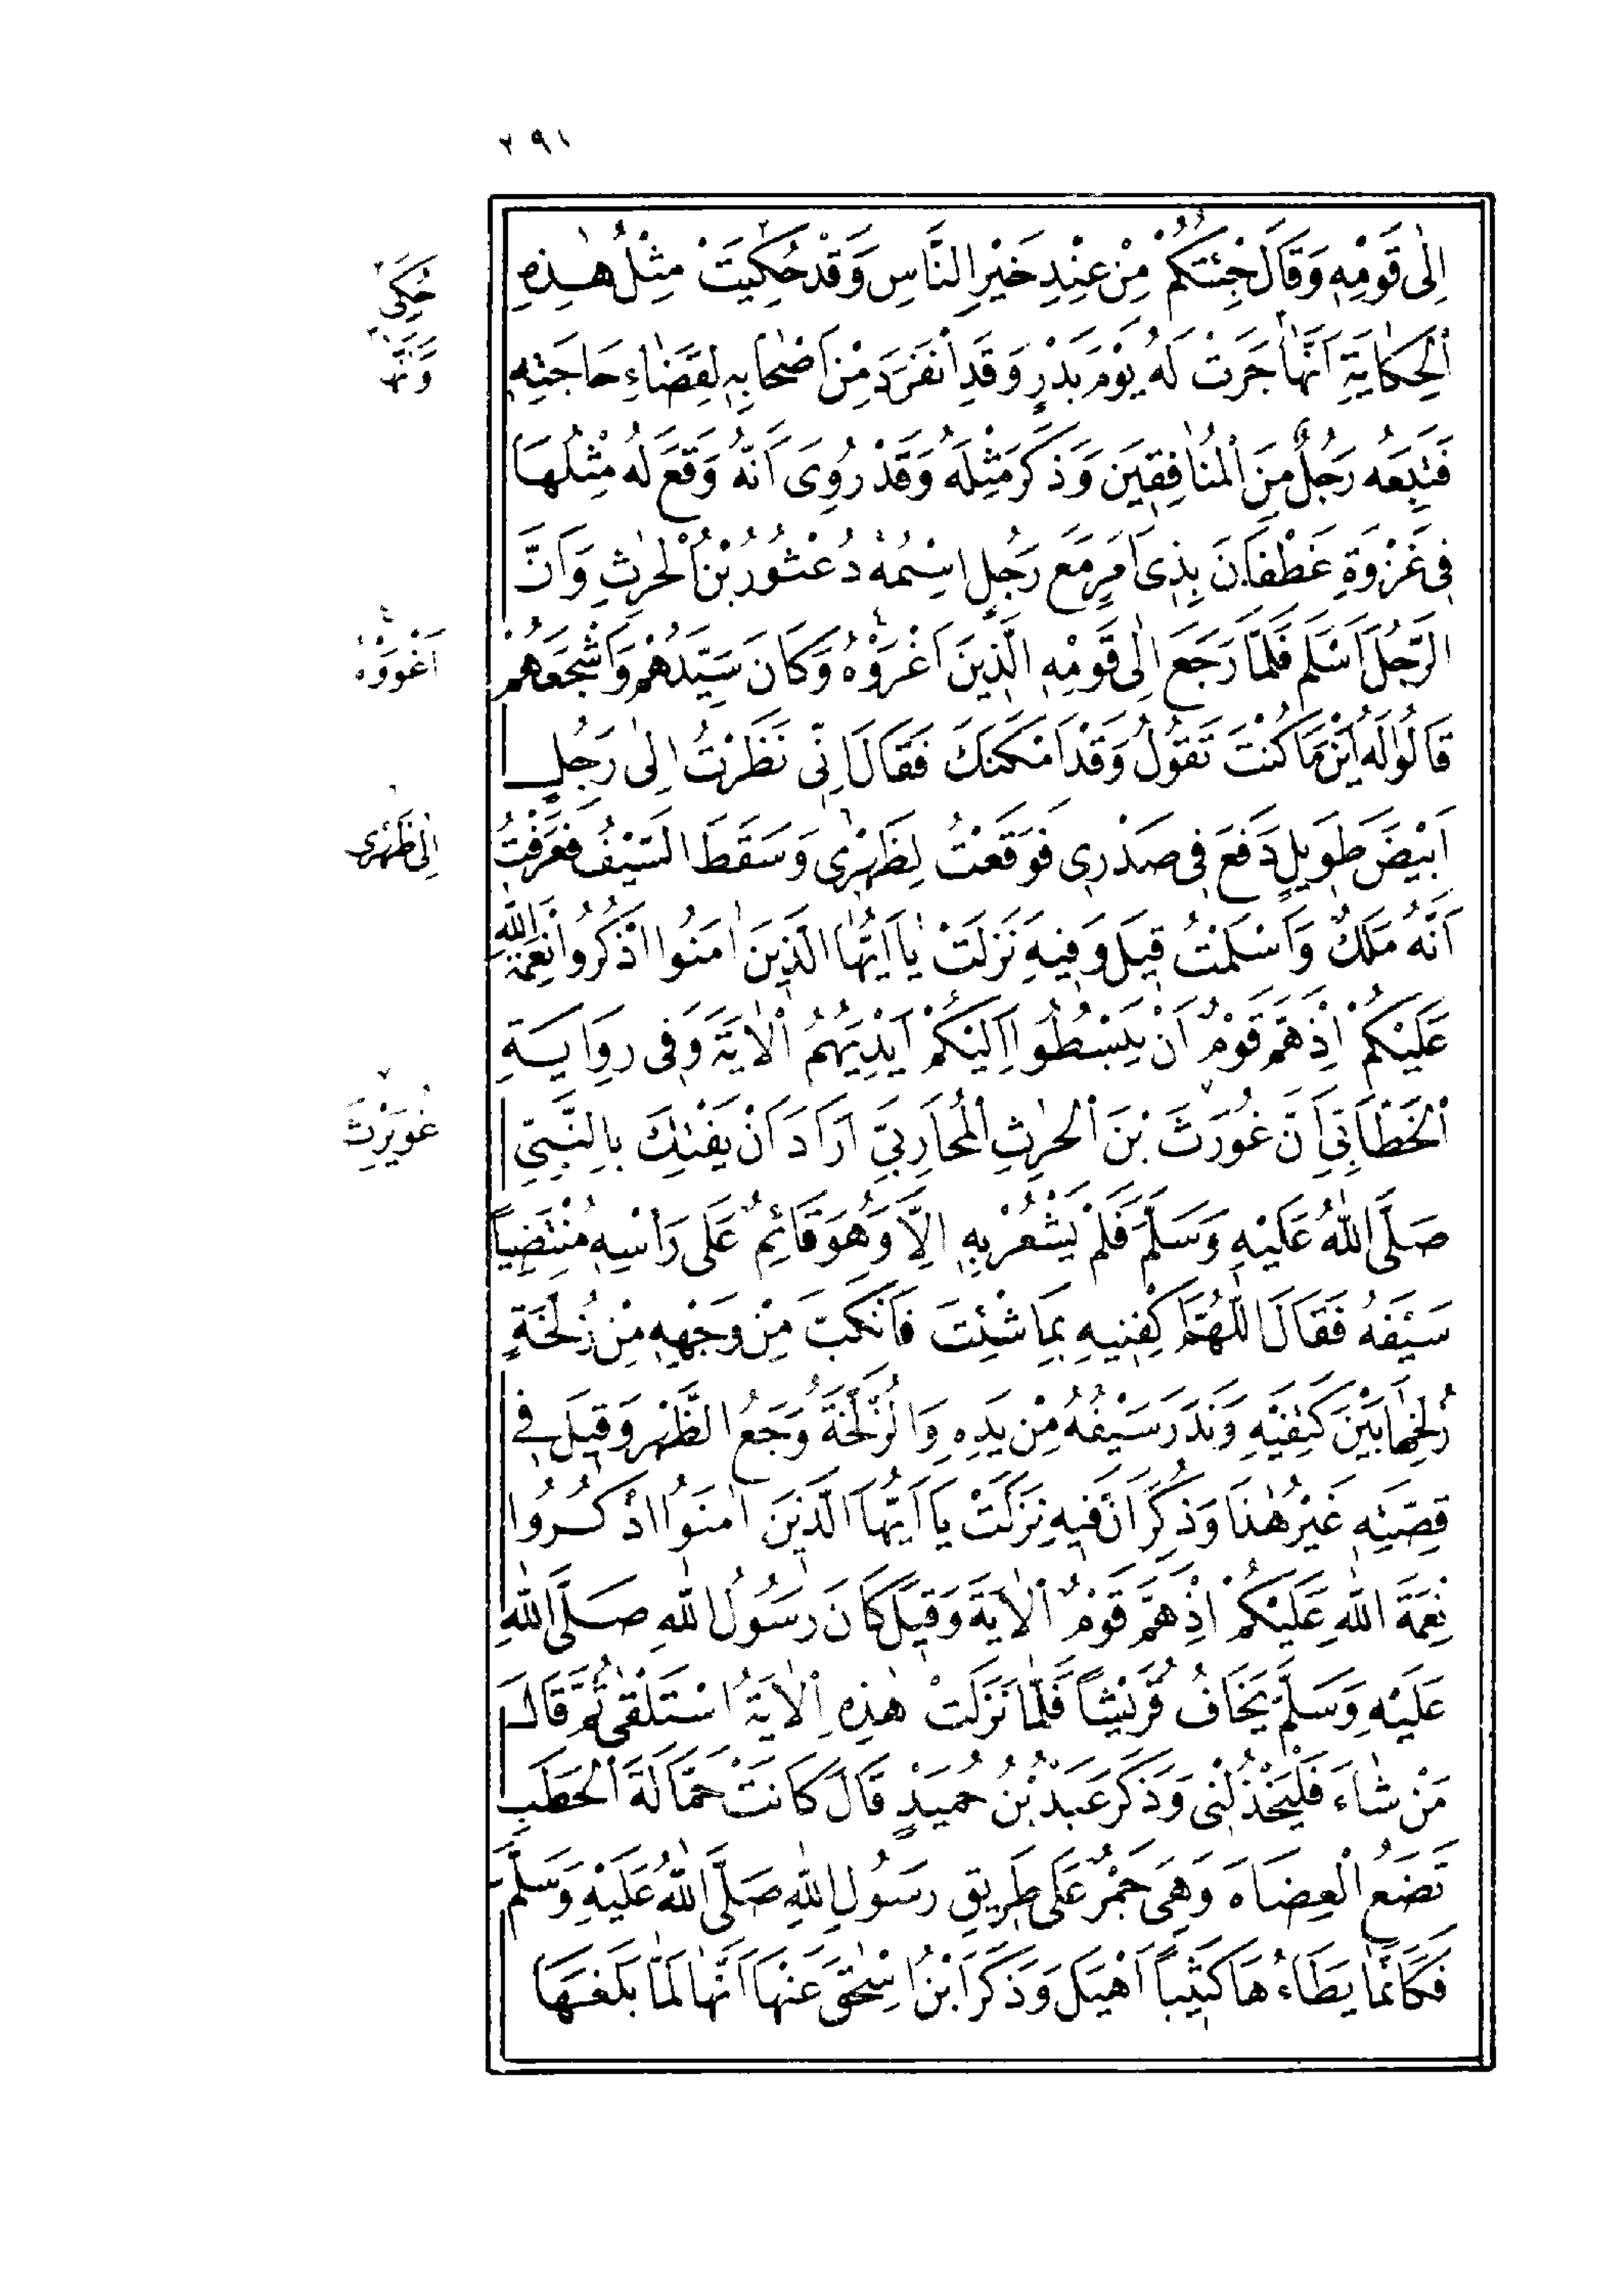 ٢٩١
اِلٰى قَوْمِهٖ وَقَالَ جِئْتُكُمْ مِنْ عِنْدِ خَيْرِ النَّاسِ وَقَدْ حُكِيَتْ مِثْلُ هٰذِهِ
حُكِىَ
اَلْحِكَايَةِ اَنَّهَا جَرَتْ لَهُ يَوْمَ بَدْرٍ وَقَدِ انْفَرَدَ مِنْ اَصْحَابِهٖ لِقَضَاءِ حَاجَتِهٖ
وَاَنَّهَا
فَتَبِعَهُ رَجُلٌ مِنَ الْمُنَافِقِينَ وَذَكَرَ مِثْلَهُ وَقَدْ رُوِىَ اَنَّهُ وَقَعَ لَهُ مِثْلُهَا
فِى غَزْوَةِ غَطَفَانَ بِذِى اَمَرٍ مَعَ رَجُلٍ اِسْمُهُ دُعْثُورُ بْنُ الْحٰرِثِ وَاَنَّ
الرَّجُلَ اَسْلَمَ فَلَمَّا رَجَعَ اِلٰى قَوْمِهٖ الَّذِينَ اَغْرَوْهُ وَكَانَ سَيِّدَهُمْ وَاَشْجَعَهُمْ
اَغْوَوْهُ
قَالُوا لَهُ اَيْنَ مَا كُنْتَ تَقُولُ وَقَدْ اَمْكَنَكَ فَقَالَ اِنِّى نَظَرْتُ اِلٰى رَجُلٍ
اَبْيَضَ طَوِيلٍ دَفَعَ فِى صَدْرِى فَوَقَعْتُ لِظَهْرِى وَسَقَطَ السَّيْفُ فَعَرَفْتُ
اِلٰى ظَهْرِى
اَنَّهُ مَلَكٌ وَاَسْلَمْتُ قِيلَ وَفِيهِ نَزَلَتْ يَا اَيُّهَا الَّذِينَ اٰمَنُوا اذْكُرُوا نِعْمَةَ اللّٰهِ
عَلَيْكُمْ اِذْ هَمَّ قَوْمٌ اَنْ يَبْسُطُوا اِلَيْكُمْ اَيْدِيَهُمُ الْاٰيَةَ وَفِى رِوَايَةِ
الْخَطَّابِيِّ اَنَّ غُوَرَثَ بْنَ الْحٰرِثِ الْمُحَارِبِيَّ اَرَادَ اَنْ يَفْتِكَ بِالنَّبِيِّ
غُوَيْرِثَ
صَلَّى اللّٰهُ عَلَيْهِ وَسَلَّمَ فَلَمْ يَشْعُرْ بِهٖ اِلَّا وَهُوَ قَائِمٌ عَلٰى رَاْسِهٖ مُنْتَضِيًا
سَيْفَهُ فَقَالَ اللّٰهُمَّ اكْفِنِيهِ بِمَا شِئْتَ فَانْكَبَّ مِنْ وَجْهِهٖ مِنْ زُلَّخَةٍ
زُلِّخَهَا بَيْنَ كَتِفَيْهِ وَنَدَرَ سَيْفُهُ مِنْ يَدِهِ وَالزُّلَّخَةُ وَجَعُ الظَّهْرِ وَقِيلَ فِى
قِصَّتِهٖ غَيْرُ هٰذَا وَذُكِرَ اَنَّ فِيهِ نَزَلَتْ يَا اَيُّهَا الَّذِينَ اٰمَنُوا اذْكُرُوا
نِعْمَةَ اللّٰهِ عَلَيْكُمْ اِذْ هَمَّ قَوْمٌ الْاٰيَةَ وَقِيلَ كَانَ رَسُولُ اللّٰهِ صَلَّى اللّٰهِ
عَلَيْهِ وَسَلَّمَ يَخَافُ قُرَيْشًا فَلَمَّا نَزَلَتْ هٰذِهِ الْاٰيَةُ اسْتَلْقٰى ثُمَّ قَالَ
مَنْ شَاءَ فَلْيَخْذُلْنِى وَذَكَرَ عَبْدُ بْنُ حُمَيْدٍ قَالَ كَانَتْ حَمَّالَةَ الْحَطَبِ
تَضَعُ الْعِضَاهَ وَهِىَ جَمْرٌ عَلٰى طَرِيقِ رَسُولِ اللّٰهِ صَلَّى اللّٰهُ عَلَيْهِ وَسَلَّمَ
فَكَاَنَّمَا يَطَاءُهَا كَثِيبًا اَهْيَلَ وَذَكَرَ ابْنُ اِسْحٰقَ عَنْهَا اَنَّهَا لَمَّا بَلَغَهَا